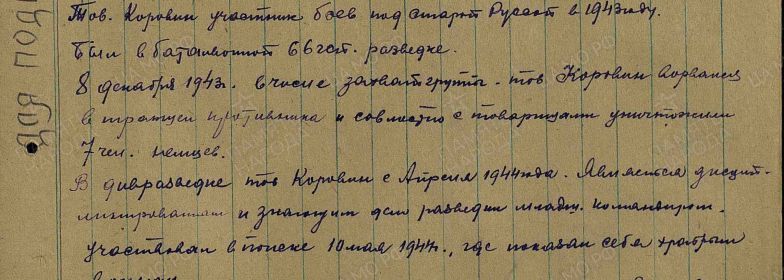 Тов. Коровин участник боев под старой Руссой в 1943 году.
Был в баталионной 66 гсп. разведке.
8 декабря 1943г. в числе захватгруппы - тов Коровин ворвался
в траншеи противника и совместно с товарищами уничтожили
7 чел. немцев.
В дивразведке тов Коровин с Апреля 1944 года. Является дисцип-
линированным и знающим дело разведки младш. командиром.
участвовал в поиске 10 мая 1944г., где показал себя храбрым
для под